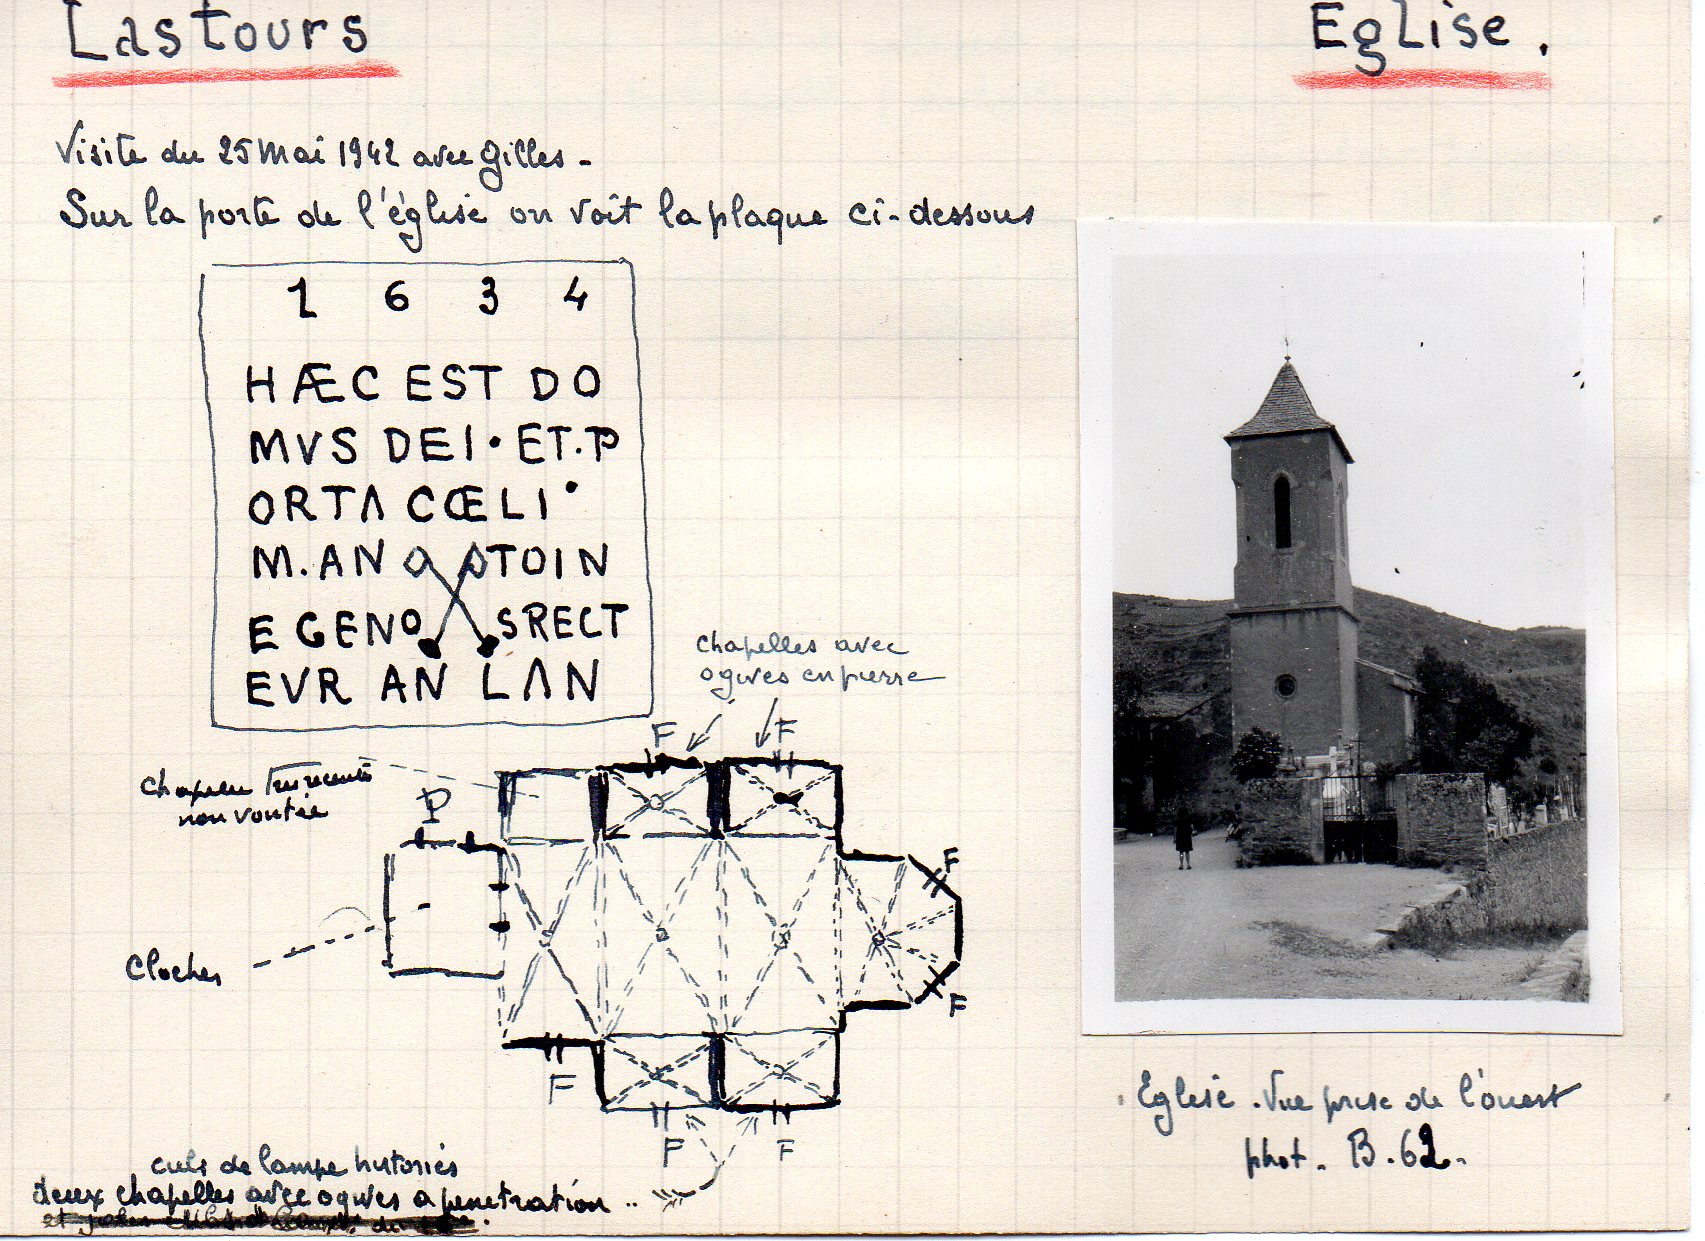 Lastours
Eglise.
Visite du 25 Mai 1942 avec Gilles -
Sur la porte de l'église on voit la plaque ci-dessous
1 6 3 4
HÆC EST DO
MVS DEI · ET · P
ORTA CŒLI ·
M. AN TOIN
E GENO SRECT
EVR AN LAN
chapelles avec
ogives en pierre
F
F
chapelle très recente
non voutée
P
F
Clocher
F
F
F
F
culs de lampe historiés
deux chapelles avec ogives a penetration ..
Eglise . Vue prise de l'ouest
phot. B.62.